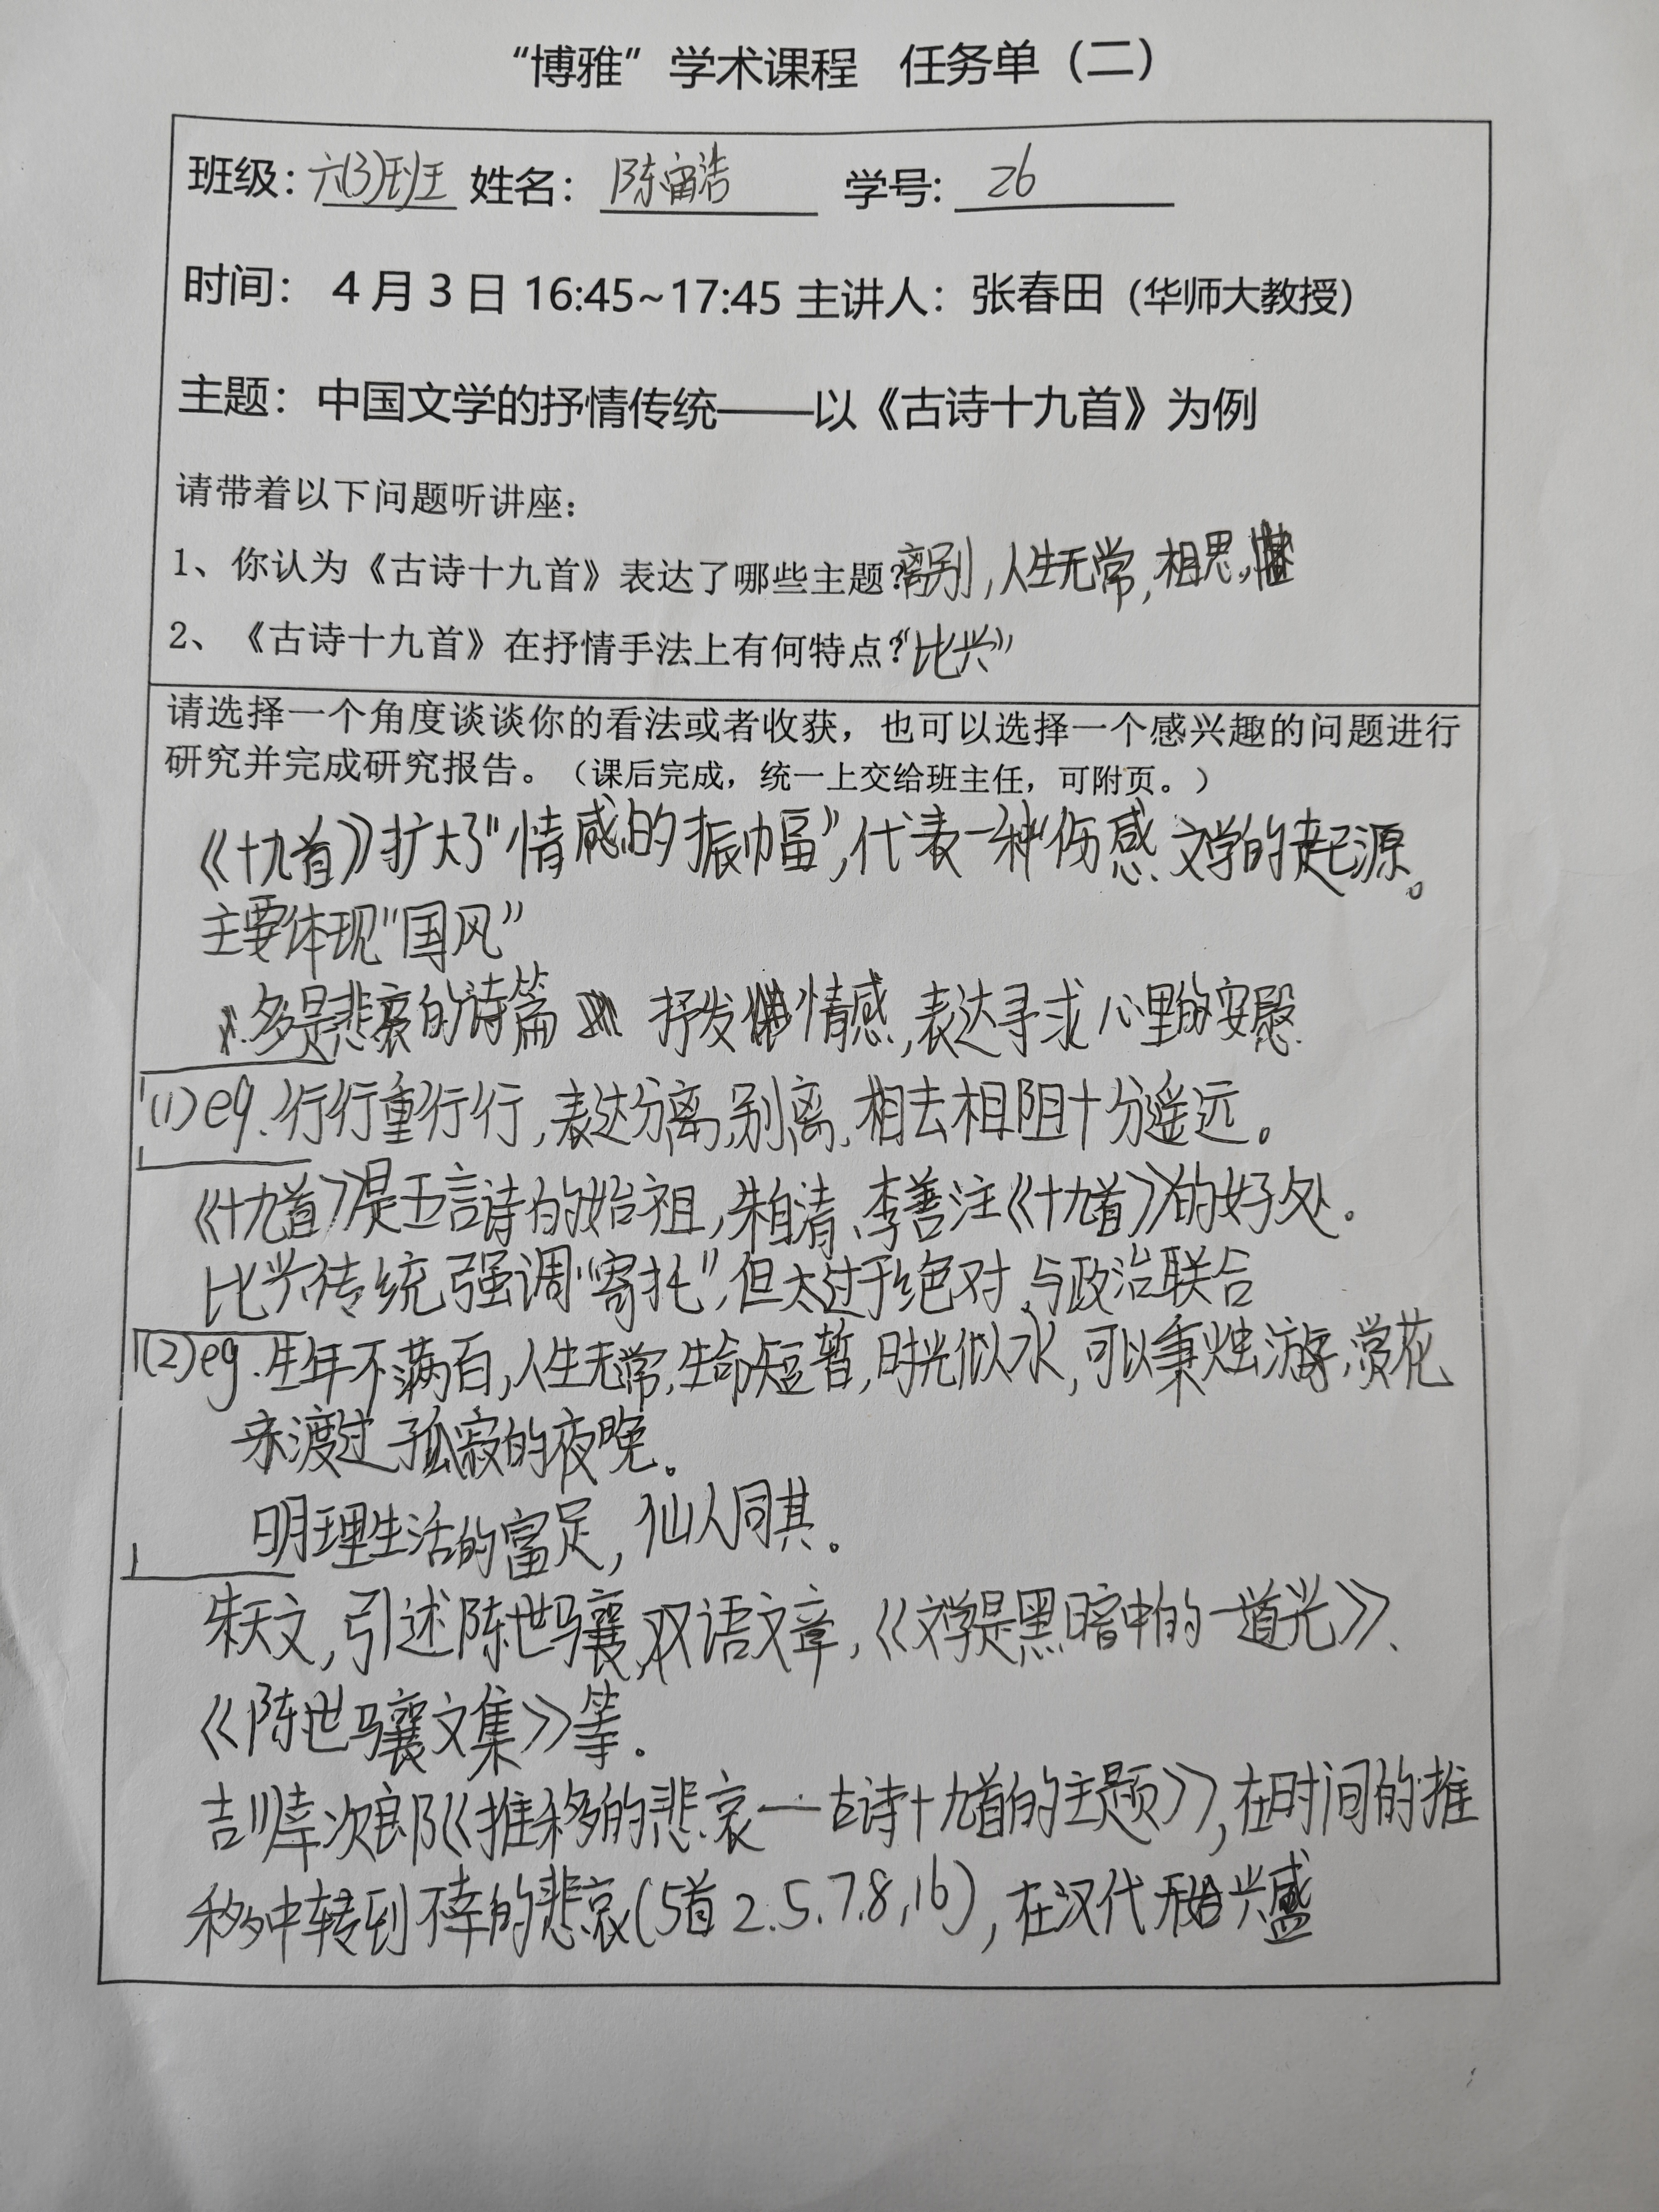 “博雅”学术课程 任务单（二）
班级：六(3)班 姓名：陈宙浩 学号：26
时间： 4月3日 16:45~17:45 主讲人：张春田（华师大教授）
主题：中国文学的抒情传统——以《古诗十九首》为例
请带着以下问题听讲座：
1、你认为《古诗十九首》表达了哪些主题？离别,人生无常,相思,
2、《古诗十九首》在抒情手法上有何特点？“比兴”
请选择一个角度谈谈你的看法或者收获，也可以选择一个感兴趣的问题进行
研究并完成研究报告。（课后完成，统一上交给班主任，可附页。）
《十九首》扩大了“情感的振幅”,代表一种伤感文学的起源。
主要体现“国风”
多是悲哀的诗篇 抒发情感,表达寻求心里的安慰.
(1)eg.行行重行行,表达分离,别离.相去相阻十分遥远。
《十九首》是五言诗的始祖,朱自清、李善注《十九首》的好处.
比兴传统强调“寄托”,但太过于绝对,与政治联合
(2)eg.生年不满百,人生无常,生命短暂,时光似水,可以秉烛游,赏花
来渡过孤寂的夜晚。
明理生活的富足,仙人同其。
朱天文,引述陈世骧,双语文章,《文学是黑暗中的一道光》、
《陈世骧文集》等.
吉川幸次郎《推移的悲哀——古诗十九首的主题》,在时间的推
移中转到不幸的悲哀(5首 2.5.7.8,16),在汉代开始兴盛